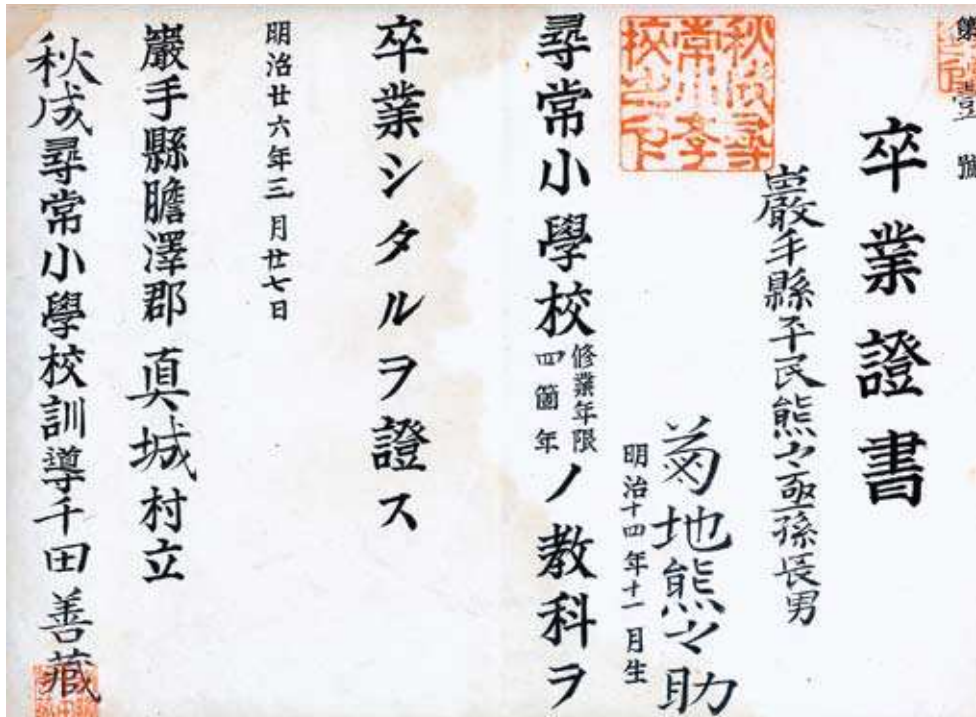 第壹號
卒業證書
巖手縣平民熊之亟孫長男
菊地熊之助
明治十四年十一月生
尋常小學校修業年限四箇年ノ教科ヲ
卒業シタルヲ證ス
明治廿六年三月廿七日
巖手縣膽澤郡真城村立
秋成尋常小學校訓導千田善藏
秋成尋常小學校之印